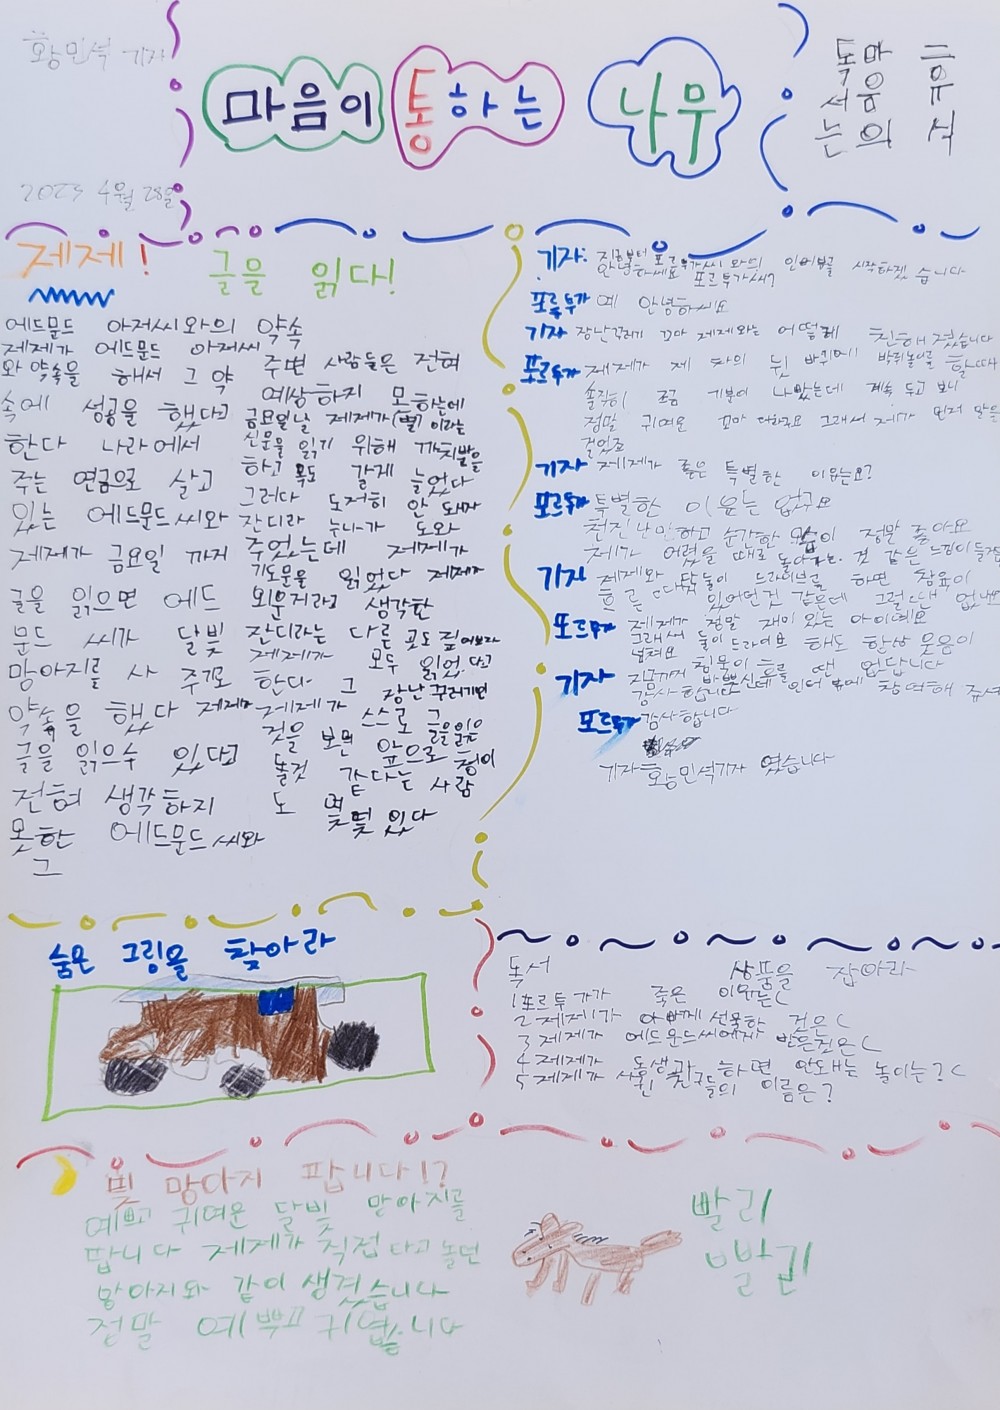 황민석 기자
2023 4월 28일
마음이 통하는 나무
독서는
마음의
휴식
제제! 글을 읽다!
에드문드 아저씨와의 약속
제제가 에드문드 아저씨
와 약속을 해서 그 약
속에 성공을 했다고
한다 나라에서
주는 연금으로 살고
있는 에드문드씨와
제제가 금요일 까지
글을 읽으면 에드
문드 씨가 달빛
망아지를 사 주기로
약속을 했다 제제가
글을 읽으수 있다고
전혀 생각하지
못한 에드문드씨와
그
주면 사람들은 전혀
예상하지 모하는데
금요일날 제제가 (별) 이라는
신문을 읽기 위해 까치발을
하고 목도 길게 늘었다
그러다 도저히 안 돼자
잔디라 누나가 도와
주었는데 제제가
기도문을 읽었다 제제가
외운거라고 생각한
잔디라는 다른 곳도 짚어보라
제제가 모두 읽었다고
한다. 그 장난꾸러기인
제제가 스스로 글을 읽은
것을 보면 앞으로 형이
될것 같다는 사람
도 몇몇 있다
기자: 지금부터 포르투가씨 와의 인터뷰를 시작하겠습니다
안녕하세요 포르투가씨?
포르투가 예 안녕하세요
기자 장난꾸러기 꼬마 제제와는 어떻게 친해졌습니다
포르투가 제제가 제 차의 뒷 바퀴에 박쥐놀이를 할때
솔직히 조금 기분이 나빴는데 계속 두고 보니
정말 귀여운 꼬마 더라구요 그래서 제가 먼저 말을
걸었죠
기자 제제가 좋은 특별한 이유는요?
포르투가 특별한 이유는 없구요
천진난만하고 순간한 모습이 정말 좋아요
제가 어렸을 때로 돌아가는 것 같은 느낌이 들거든
기자 제제와 단둘이 드라이브를 하면 침묵이
흐른 때가 있었던것 같은데 그럴땐 없나요
포르투가 제제가 정말 재미 있는 아이예요
그래서 둘이 드라이브 해도 항상 웃음이
넘쳐요 침묵이 흐를 땐 없답니다
기자 지금까지 바쁘신데 인터뷰에 참여해 주셔서
감사합니다
포르투가 감사합니다
기자는 황민석기자 였습니다
숨은 그림을 찾아라
독서 상품을 잡아라
1 포르투가가 죽은 이유는(
2 제제가 아빠께 선물한 것은(
3 제제가 에드문드씨에게 받은것은(
4 제제가 동생과 하면 안돼는 놀이는?(
5 제제가 사귄 친구들의 이름은?
빛 망아지 팝니다!?
예쁘고 귀여운 달빛 망아지를
팝니다 제제가 직접 타고 놀던
망아지와 같이 생겼습니다
정말 예쁘고 귀엽습니다
빨리